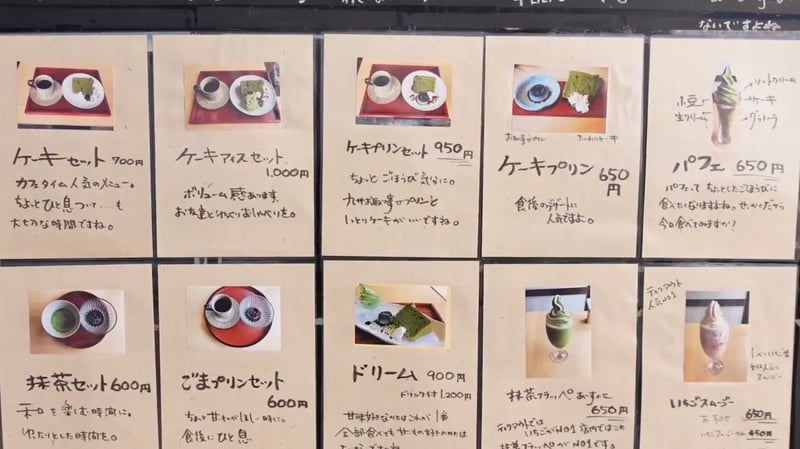 ないですよね
ケーキセット 700円
カフェタイム人気のメニュー。
ちょっとひと息ついて……も
大切な時間ですね。
ケーキアイスセット
1,000円
ボリューム感あります。
お友達と おしゃべりを。
ケーキプリンセット 950円
ちょっとごほうび気分に。
プリンと
しっとりケーキがいいですね。
ケーキプリン 650円
食後のデザートに
人気ですよ。
ソフトクリーム
小豆
ケーキ
生クリーム
グラノーラ
パフェ 650円
パフェって ちょっとしたごほうびに
食べたくなりますよね。せっかくだから
今日食べてみますか?
抹茶セット 600円
和を楽しむ時間に。
ゆったりとした時間を。
ごまプリンセット
600円
ちょっと甘いものがほしい時に。
食後にひと息
ドリーム 900円
ドリンク付 1,200円
甘味好きな方はこれが1番
全部食べても
抹茶フラッペ あずのせ
650円
テイクアウトでは
いちごがNO1 店内ではこの
抹茶フラッペがNO1です。
テイクアウト
人気NO1
いちごスムージー
あずのせ 650円
450円